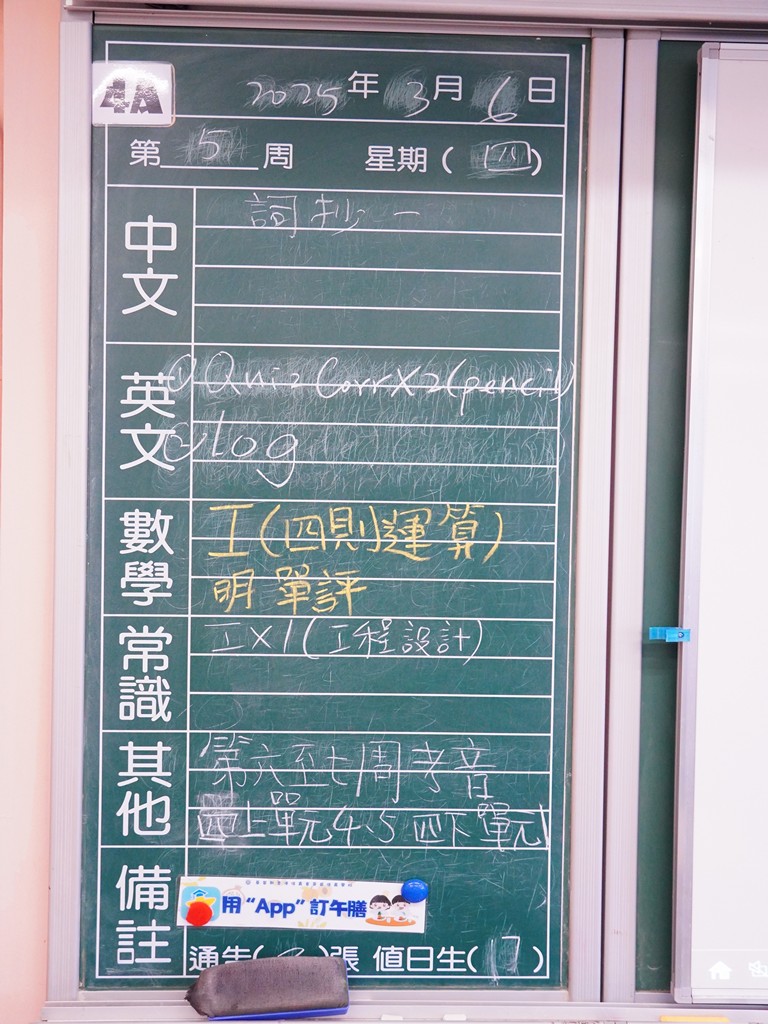 4A
2025年3月6日
第5周 星期(四)
中文
詞抄一
英文
①Quiz Corr X2(pencil)
②log
數學
工(四則運算)
明單評
常識
工X1(工程設計)
其他
第六至七周考音
四上單元4、5 四下單元1
備註
用“App”訂午膳
通告( )張 值日生(17)